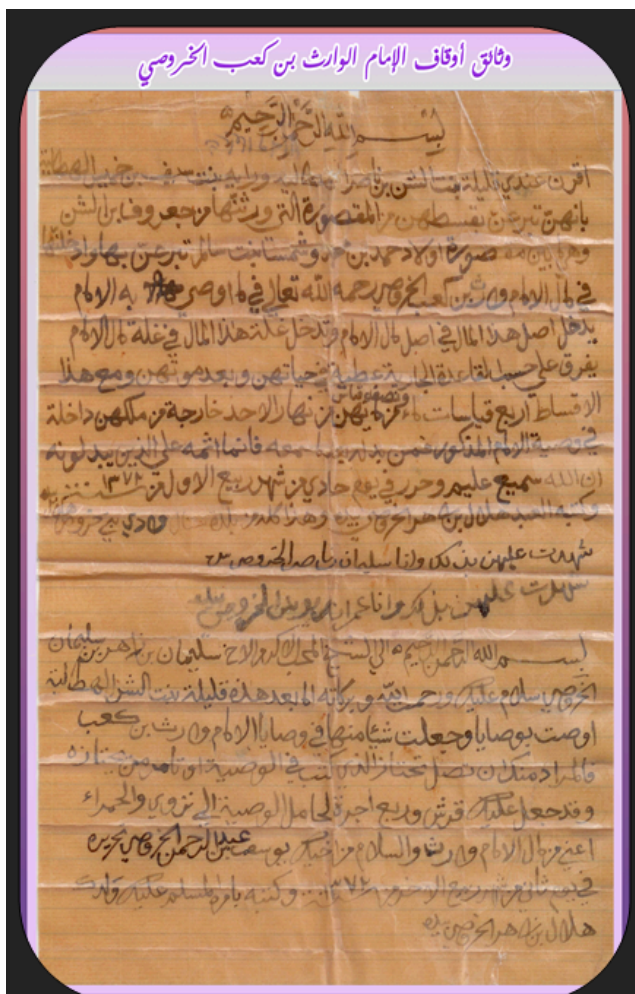 وثائق أوقاف الإمام الوارث بن كعب الخروصي
بسم الله الرحمن الرحيم
اقرن عندي قليلة بنت الشن بن ناصر الهطالية وراية بنت سيف بن خميل الهطالية
بانهن تبرعن بقسطهن من المقصورة التي ورثنها من جعروف بن الشن
وهي بين مقصورة اولاد حمد بن وشمسا بنت سالم تبرعن بها وادخلنها
في مال الامام وارث بن كعب الخروصي رحمه الله تعالى في ما اوصى به الامام
يدخل اصل هذا المال في اصل مال الامام وتدخل غلة هذا المال في غلة مال الامام
يفرق على حسب القاعدة الجارية عطية في حياتهن وبعد موتهن ومع هذا
ونصف قياس
الاقساط اربع قياسات ماء من مائهن من نهار الاحد خارجة من ملكهن داخلة
في وصية الامام المذكور فمن بدله بعدما سمعه فانما اثمه على الذين يبدلونه
ان الله سميع عليم وحرر في يوم حادي من شهر ربيع الاول من سنة ١٣٧٢
وكتبه العبد هلال بن زاهر الخروصي بيده وهذا المذكور وادي بني خروص
شهدت عليهن بذلك وانا سليمان بن زاهر الخروصي
شهدت عليهن بذلك وانا
بسم الله الرحمن الرحيم الى الشيخ المحب الاكرم الاخ سليمان بن زاهر بن سليمان
الخروصي سلام عليك ورحمت الله وبركاته اما بعد هذه قليلة بنت الشن الهطالية
اوصت بوصايا وجعلت شيئا منها في وصايا الامام وارث بن كعب
فالمراد منك ان تصل تختار الذي كتب في الوصية او تامر من تختاره
وقد جعل عليك قرش وربع اجرة لحامل الوصية الى نزوى والحمراء
اعني من مال الامام وارث والسلام من اخيك يوسف بن عبد الرحمن الخروصي تحريره
في يوم ثاني من شهر ربيع الاخر ١٣٧٢ وكتبه بامره المسلم عليك ولدك
هلال بن زاهر الخروصي بيده